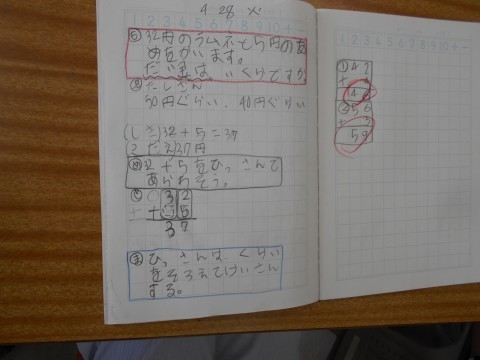 4 28
1 2 3 4 5 6 7 8 9 10
も 32円のラムネと5円のあ
めをかいます。
だい金は、いくらですか。
たしざん
30円ぐらい、40円ぐらい
(しき)32+5=37
(こたえ)37円
32+5をひっさんで
あらわそう。
32
+ 5
37
ま ひっさんは、くらい
をそろえてけいさん
する。
1 2 3 4 5 6 7
① 42
+
② 56
+ 3
59